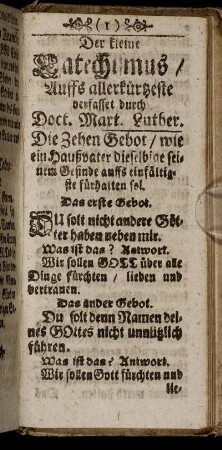 ( 1 )
Der kleine
Catechismus /
Auffs allerkürtzeste
verfasset durch
Doct. Mart. Luther.
Die Zehen Gebot / wie
ein Haußvater dieselbige sei-
nem Gesinde auffs einfältig-
ste fürhalten sol.
Das erste Gebot.
DU solt nicht andere Göt-
ter haben neben mir.
Was ist das? Antwort.
Wir sollen GOTT über alle
Dinge fürchten / lieben und
vertrauen.
Das ander Gebot.
Du solt denn Namen dei-
nes GOttes nicht unnützlich
führen.
Was ist das? Antwort.
Wir sollen Gott fürchten und
lie-